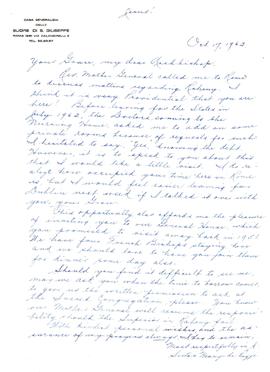 CASA GENERALIZIA
DELLE
SUORE DI S. GIUSEPPE
Oct 17, 1962
Your Grace, my dear Archbishop,
Rev. Mother General called me to Rome
to discuss matters regarding
think it is very Providential that you are
here! Before leaving for the States in
July 1962, the Doctors coming to the
Nursing Home, asked me to add on some
private rooms because of requests for such.
I hesitated to say "Yes" knowing the debt
However, it is to speak to you about this
that I would like a little visit. I
how occupied your time here in Rome
is, but I would feel easier leaving for
Dublin next week if I talked it over with
you, your Grace.
This opportunity also affords me the pleasure
of inviting you to our General House which
you promised to visit away back in
We have four French Bishops staying here
and we should love to have you join them
for dinner some day also.
Should you find it difficult to see me
may we ask you when the time to borrow comes,
to give us the written permission to ask at
the Sacred Congregation please. You know
our Mother General will assume the
bility should the Depression or
With kindest personal wishes, and the as-
surance of my prayers always, I beg to remain,
Most respectfully in
Sister Mary